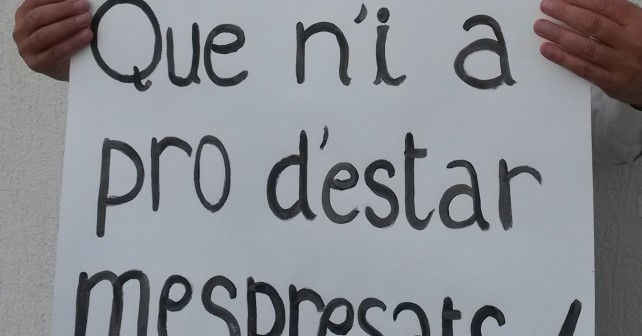 Que n'i a
pro d'estar
mespresats !